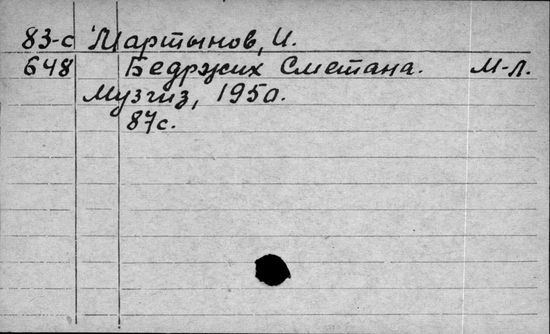 83-с Мартынов, И.
648 Бедржих Сметана. М-Л.
Музгиз, 1950.
87с.